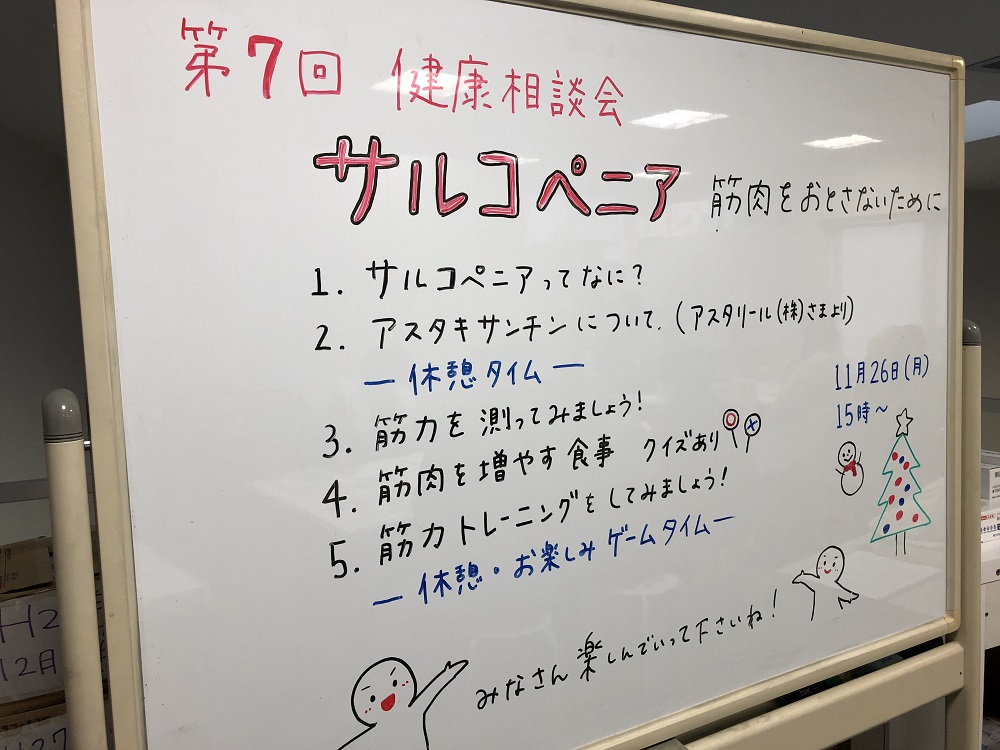 第7回 健康相談会
サルコペニア 筋肉をおとさないために
1. サルコペニアってなに?
2. アスタキサンチンについて. (アスタリール(株)さまより)
― 休憩タイム ―
3. 筋力を測ってみましょう!
4. 筋肉を増やす食事 クイズあり
5. 筋力トレーニングをしてみましょう!
― 休憩・お楽しみゲームタイム ―
11月26日(月)
15時～
みなさん楽しんでいって下さいね!
H2
12月
H27